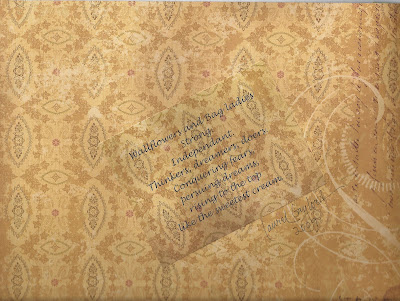 Wallflowers and Bagladies
strong,
Independant,
Thinkers, dreamers, doers
Conquering fears,
persuing dreams,
rising to the top
like the sweetest cream